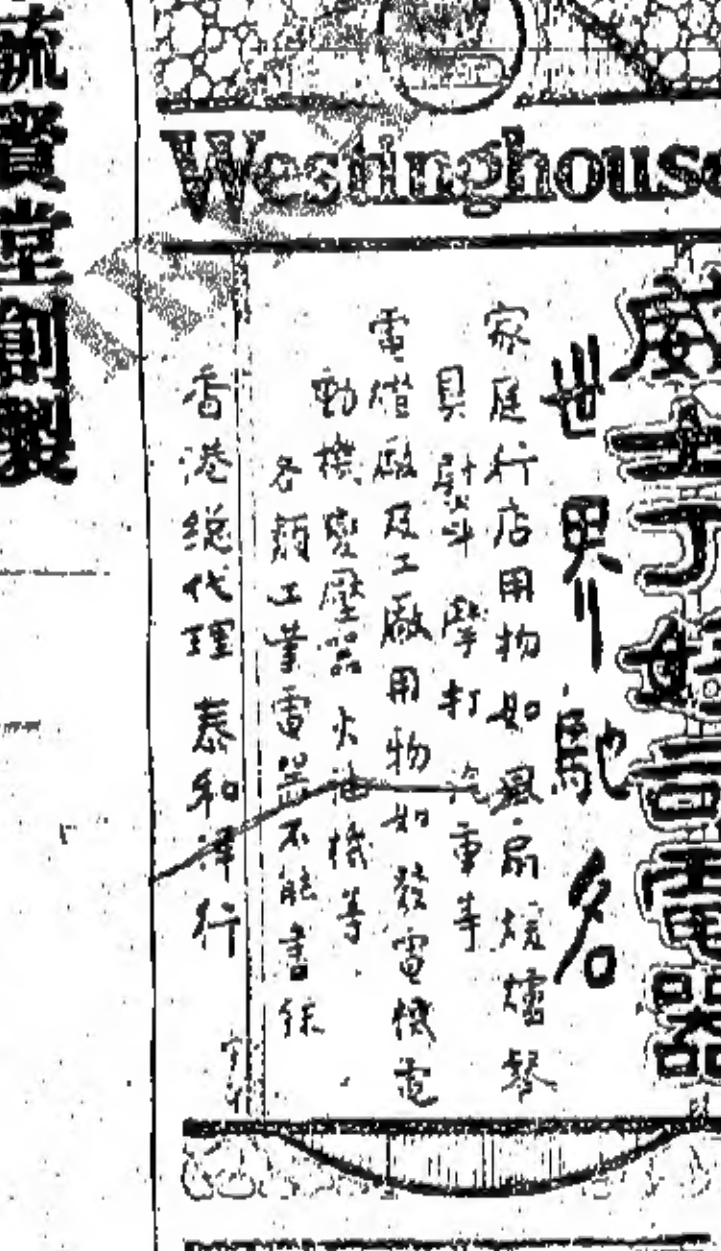 Westinghouse
威士丁電器
世界馳名
家庭行店用物如風扇爐
具熨斗 摩打 汽車等
電燈廠及工廠用物如發電機電
動機變壓器火油機等
各類工業電器不能書錄
香港總代理 泰和洋行
堂創製